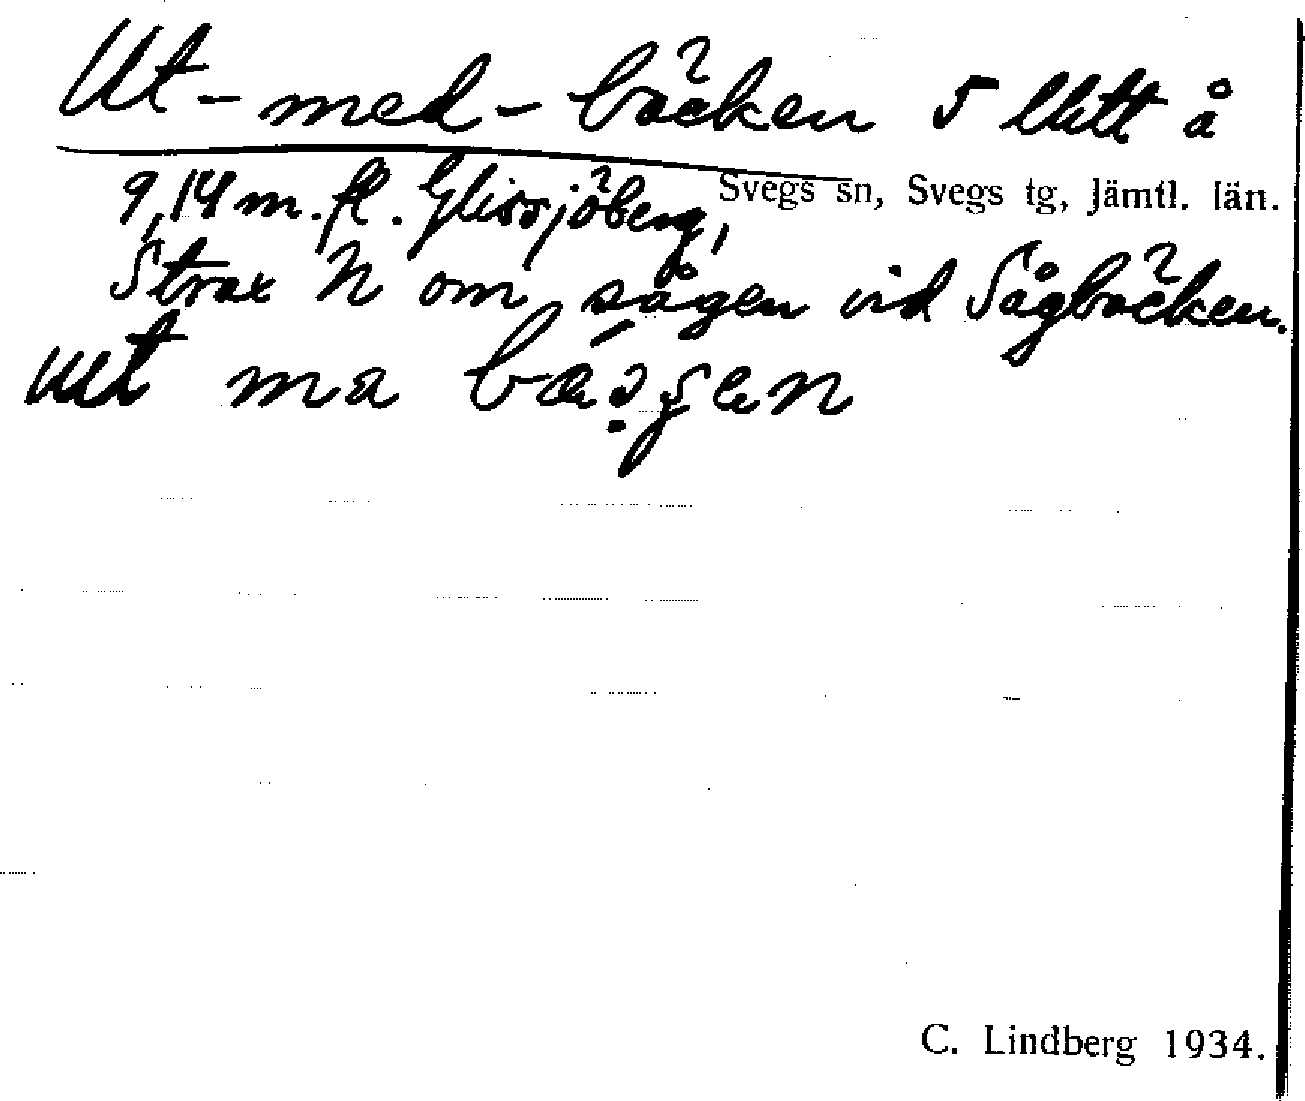 Ut-med-bäcken 5 Utt å
9,14 m.fl. Glissjöberg,
Svegs sn, Svegs tg, Jämtl. län.
Strax N om sågen vid Sågbäcken.
ma
C. Lindberg 1934.